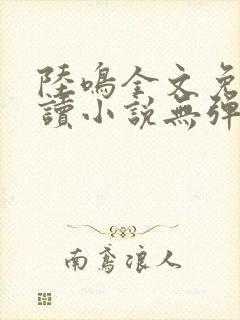 陸鳴全文免
讀小說無彈
南鳶浪人